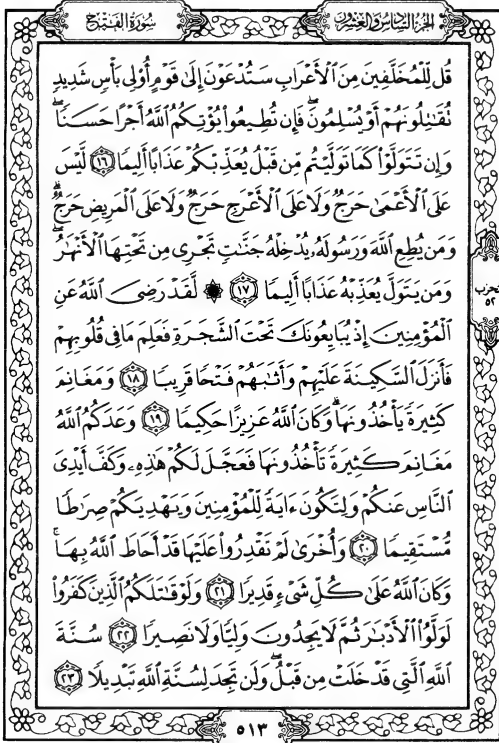 الجزء السادس والعشرون
سورة الفتح
قُل لِّلْمُخَلَّفِينَ مِنَ ٱلْأَعْرَابِ سَتُدْعَوْنَ إِلَىٰ قَوْمٍ أُوْلِى بَأْسٍ شَدِيدٍ
تُقَٰتِلُونَهُمْ أَوْ يُسْلِمُونَ ۖ فَإِن تُطِيعُوا۟ يُؤْتِكُمُ ٱللَّهُ أَجْرًا حَسَنًا ۖ
وَإِن تَتَوَلَّوْا۟ كَمَا تَوَلَّيْتُم مِّن قَبْلُ يُعَذِّبْكُمْ عَذَابًا أَلِيمًا ١٦ لَّيْسَ
عَلَى ٱلْأَعْمَىٰ حَرَجٌ وَلَا عَلَى ٱلْأَعْرَجِ حَرَجٌ وَلَا عَلَى ٱلْمَرِيضِ حَرَجٌ ۗ
وَمَن يُطِعِ ٱللَّهَ وَرَسُولَهُۥ يُدْخِلْهُ جَنَّٰتٍ تَجْرِى مِن تَحْتِهَا ٱلْأَنْهَٰرُ ۖ
وَمَن يَتَوَلَّ يُعَذِّبْهُ عَذَابًا أَلِيمًا ١٧ ۞ لَّقَدْ رَضِىَ ٱللَّهُ عَنِ
ٱلْمُؤْمِنِينَ إِذْ يُبَايِعُونَكَ تَحْتَ ٱلشَّجَرَةِ فَعَلِمَ مَا فِى قُلُوبِهِمْ
فَأَنزَلَ ٱلسَّكِينَةَ عَلَيْهِمْ وَأَثَٰبَهُمْ فَتْحًا قَرِيبًا ١٨ وَمَغَانِمَ
كَثِيرَةً يَأْخُذُونَهَا ۗ وَكَانَ ٱللَّهُ عَزِيزًا حَكِيمًا ١٩ وَعَدَكُمُ ٱللَّهُ
مَغَانِمَ كَثِيرَةً تَأْخُذُونَهَا فَعَجَّلَ لَكُمْ هَٰذِهِۦ وَكَفَّ أَيْدِىَ
ٱلنَّاسِ عَنكُمْ وَلِتَكُونَ ءَايَةً لِّلْمُؤْمِنِينَ وَيَهْدِيَكُمْ صِرَٰطًا
مُّسْتَقِيمًا ٢٠ وَأُخْرَىٰ لَمْ تَقْدِرُوا۟ عَلَيْهَا قَدْ أَحَاطَ ٱللَّهُ بِهَا ۚ
وَكَانَ ٱللَّهُ عَلَىٰ كُلِّ شَىْءٍ قَدِيرًا ٢١ وَلَوْ قَٰتَلَكُمُ ٱلَّذِينَ كَفَرُوا۟
لَوَلَّوُا۟ ٱلْأَدْبَٰرَ ثُمَّ لَا يَجِدُونَ وَلِيًّا وَلَا نَصِيرًا ٢٢ سُنَّةَ
ٱللَّهِ ٱلَّتِى قَدْ خَلَتْ مِن قَبْلُ ۖ وَلَن تَجِدَ لِسُنَّةِ ٱللَّهِ تَبْدِيلًا ٢٣
الحزب
٥٢
٥١٣